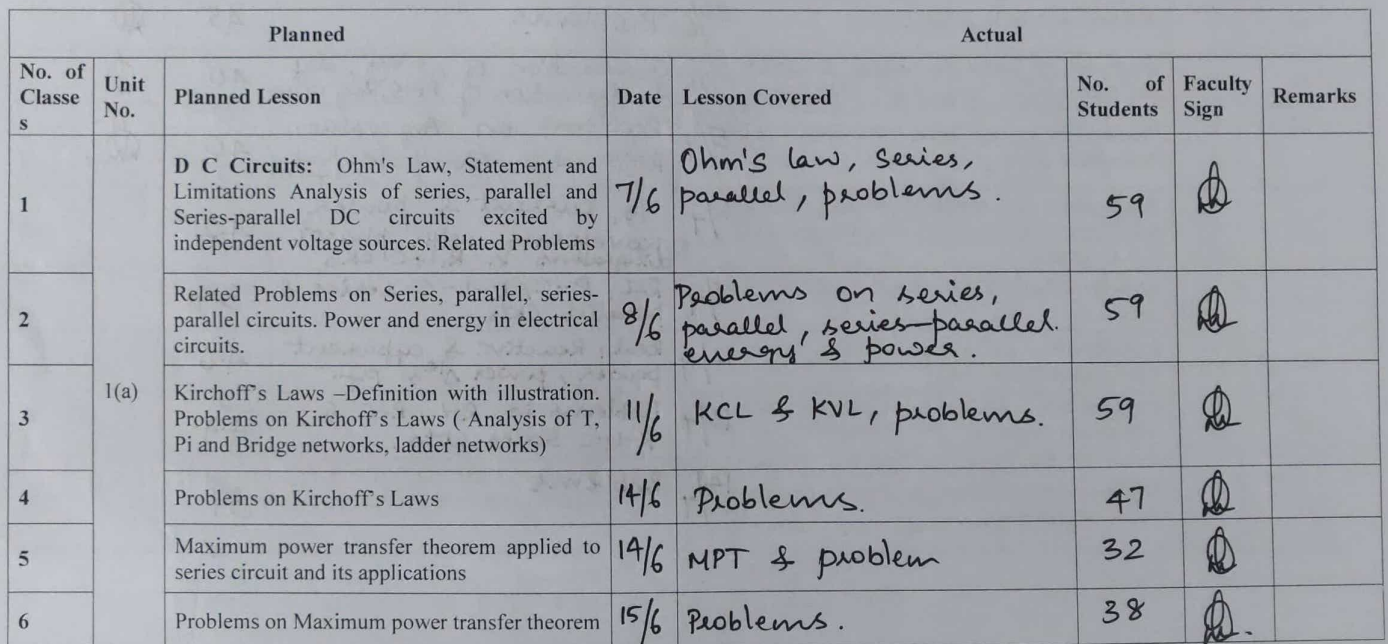 Planned Actual
No. of Classe s Unit No. Planned Lesson Date Lesson Covered No. of Students Faculty Sign Remarks
1
D C Circuits: Ohm's Law, Statement and
Limitations Analysis of series, parallel and
Series-parallel DC circuits excited by
independent voltage sources. Related Problems
7/6
Ohm's law, series,
parallel, problems.
59
2
Related Problems on Series, parallel, series-
parallel circuits. Power and energy in electrical
circuits.
8/6
Problems on series,
parallel, series-parallel.
energy & power.
59
1(a)
3
Kirchoff's Laws –Definition with illustration.
Problems on Kirchoff's Laws ( Analysis of T,
Pi and Bridge networks, ladder networks)
11/6
KCL & KVL, problems.
59
4
Problems on Kirchoff's Laws
14/6
Problems.
47
5
Maximum power transfer theorem applied to
series circuit and its applications
14/6
MPT & problem
32
6
Problems on Maximum power transfer theorem
15/6
Problems.
38